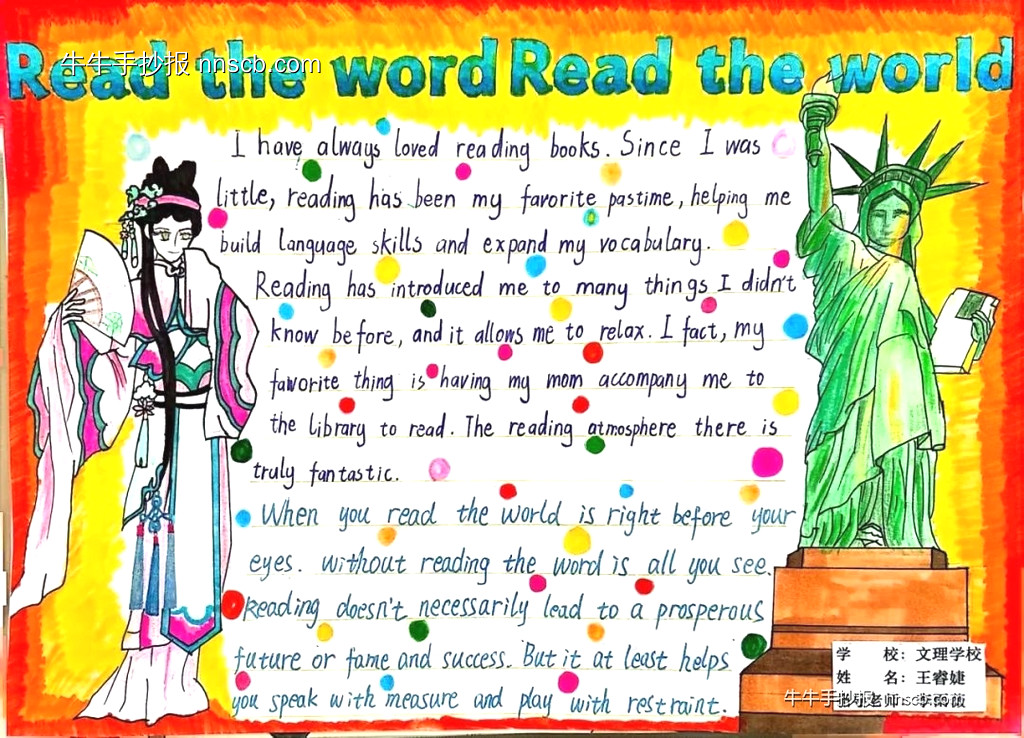 Read the word Read the world
牛牛手抄报 nhscb.com
I have always loved reading books. Since I was
little, reading has been my favorite pastime, helping me
build language skills and expand my vocabulary.
Reading has introduced me to many things I didn't
know before, and it allows me to relax. I fact, my
faworite thing is having my mom accompany me to
the library to read. The reading atmosphere there is
truly fantastic.
When you read the world is right before your
eyes. without reading the word is all you see.
Reading doesn't necessarily lead to a prosperous
future or fame and success. But it at least helps
you speak with measure and play with restraint.
学 校：文理学校
姓 名：王睿婕
牛牛手抄报
老师：李